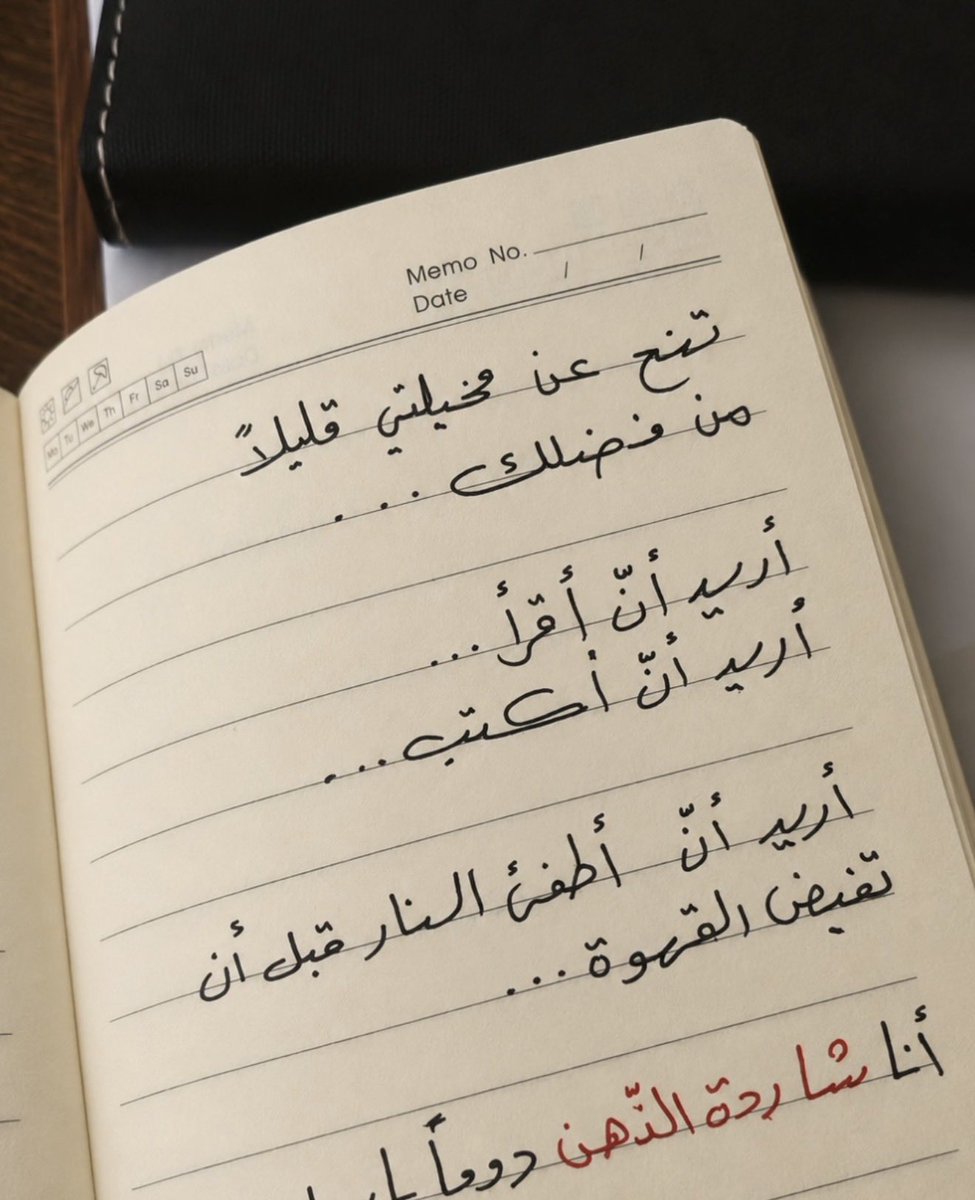 Memo No.
Date / /
Mo Tu We Th Fr Sa Su
تنح عن مخيلتي قليلاً
من فضلك ...
أريد أنّ أقرأ ...
أريد أنّ أكتب ...
أريد أنّ أطفئ النار قبل أن
تفيض القهوة ...
أنا شاردة الذّهن دوماً